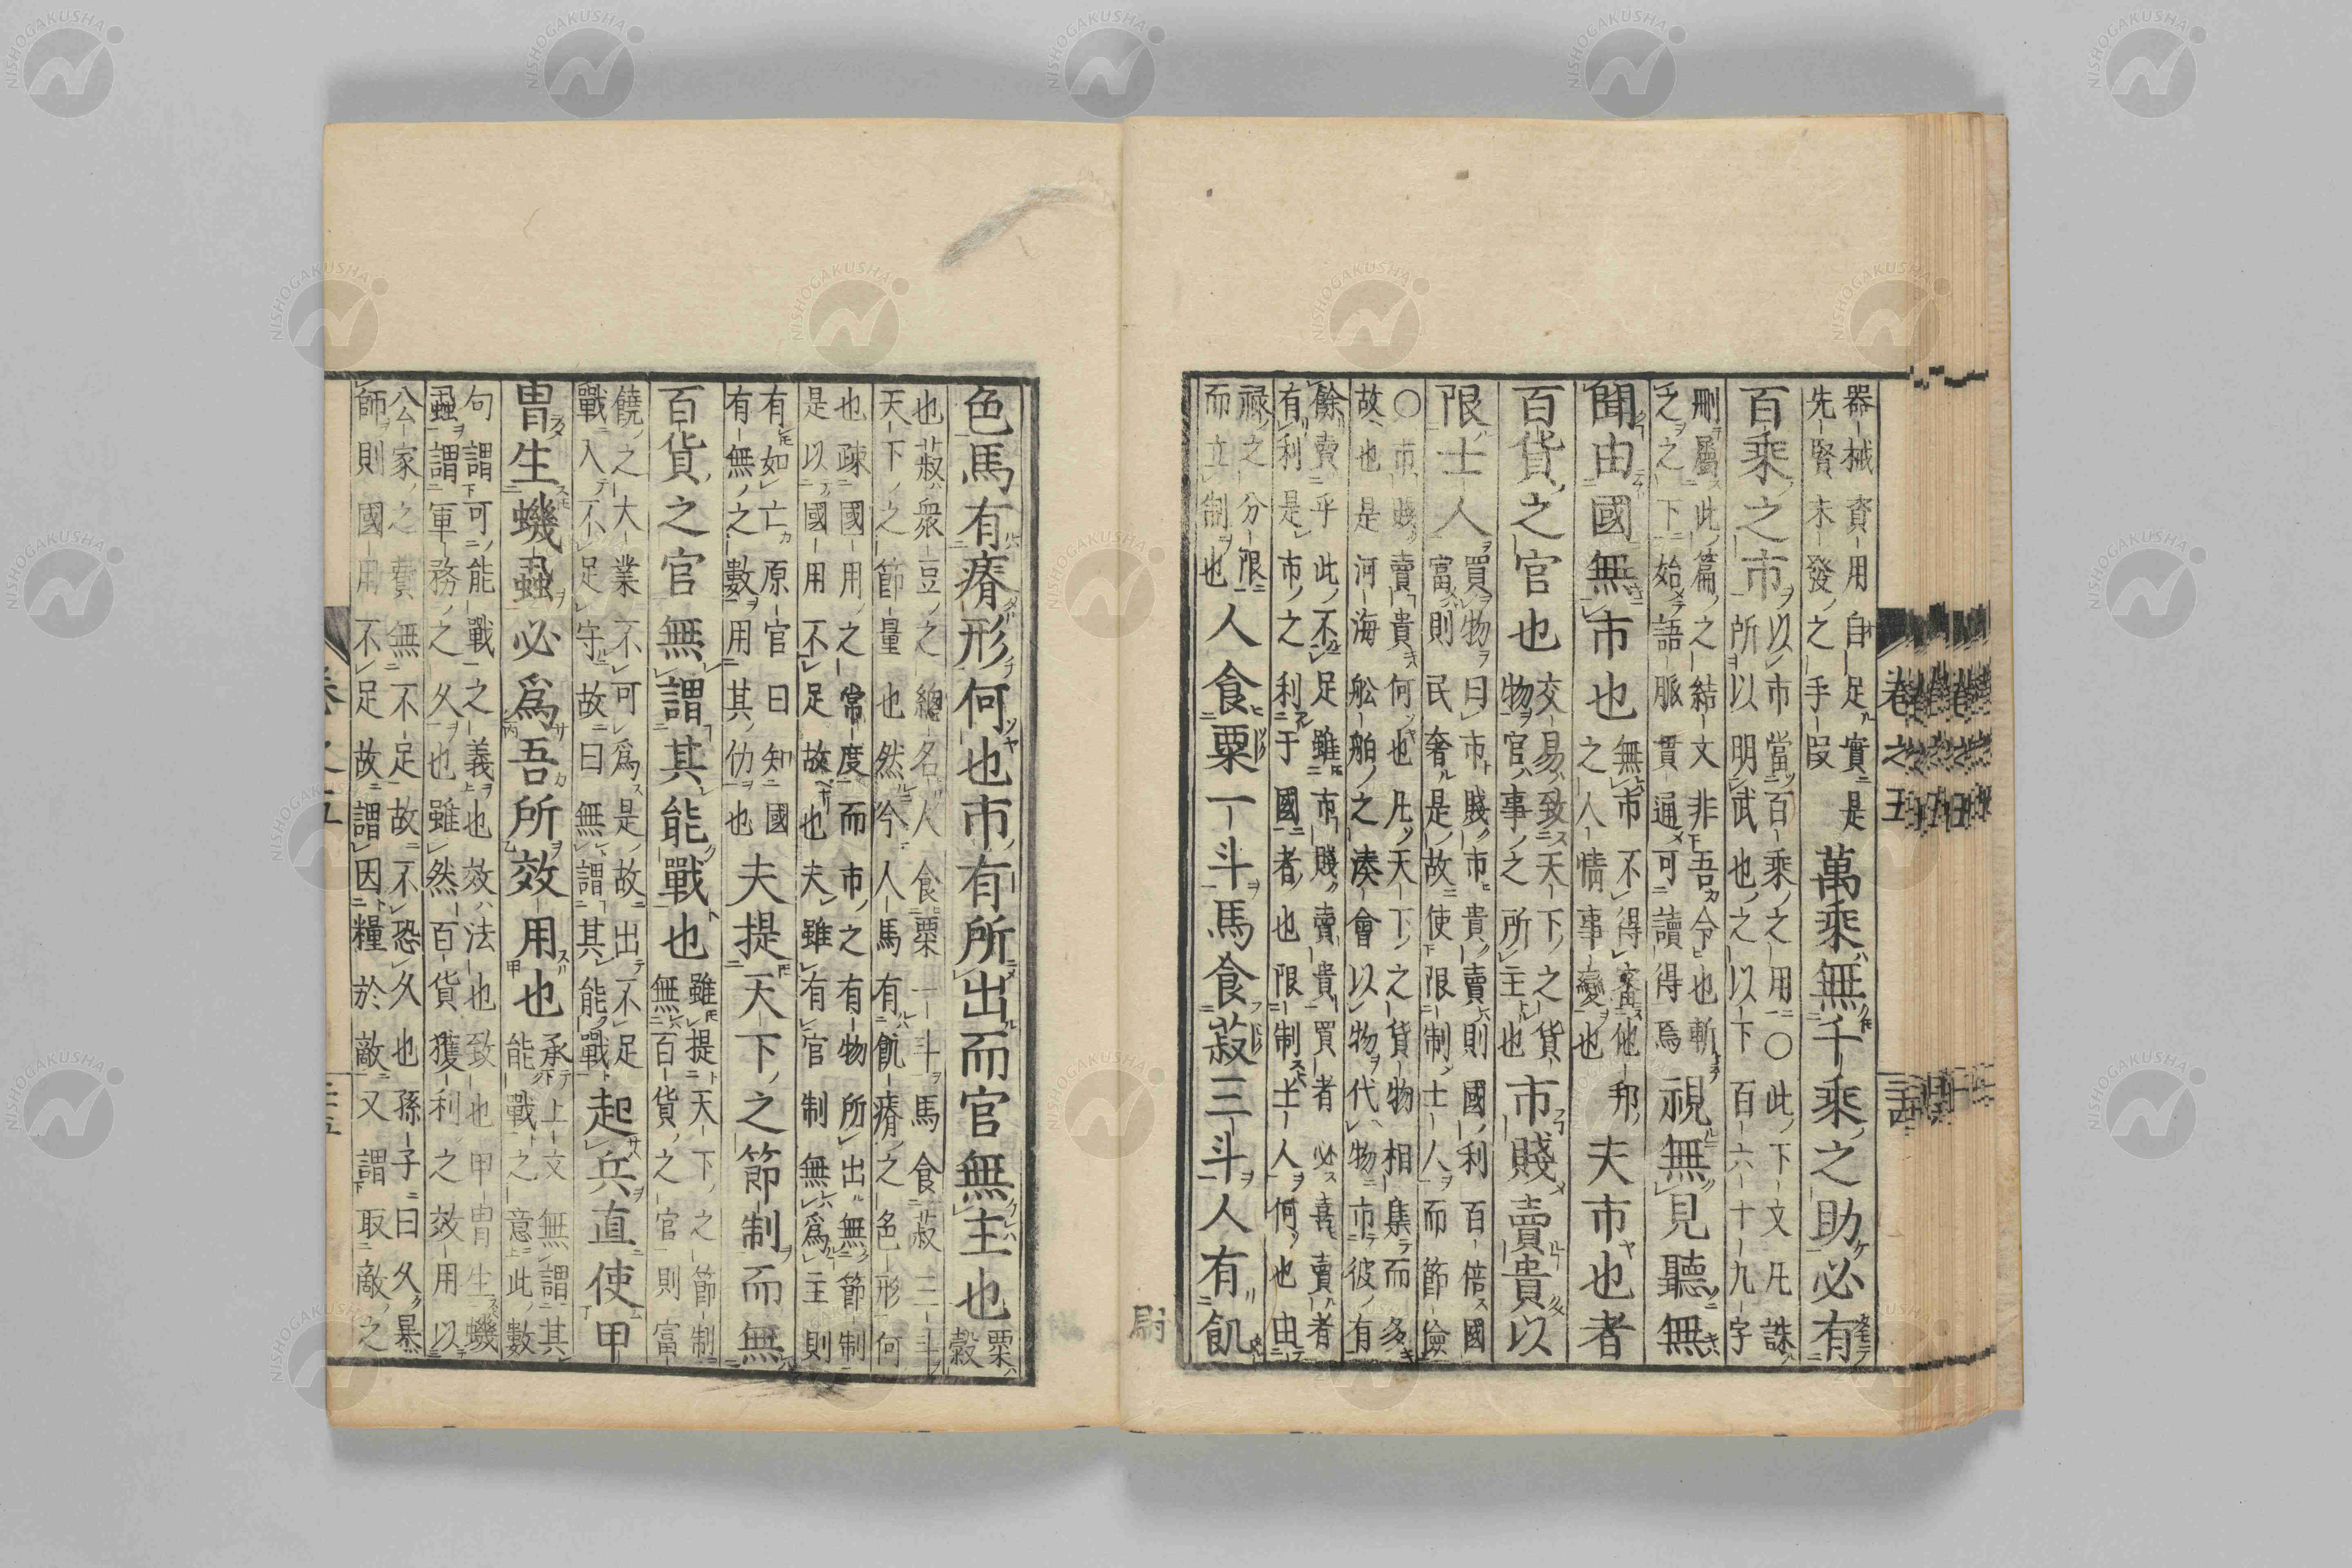 器械資用自足實是
先賢未發之手段
萬乘無千乘之助必有
百乘之市
以市當百乘之用〇此下文凡誅
所以明武也之以下百六十九字
刪屬此篇之結文非吾令也斬
乏之下始語脈貫通可讀得焉
視無見聽無
聞由國無市也
無市不得他邦
之人情事變也
夫市也者
百貨之官也
交易致天下之貨
物官事之所主也
市賤賣貴以
限士人
買物曰市賤市貴賣則國利百倍國
富則民奢是故使限制士人而節儉
〇市賤賣貴何也凡天下之貨物相集而多
故也是河海舩舶之湊會以物代物市彼有
餘賣乎此不足雖市賤賣貴買者必喜賣者
有利是市之利于國者也限制士人何也由
祿之分限
而立制也
人食粟一斗馬食菽三斗人有飢
尉
卷之五
色馬有瘠形何也市有所出而官無主也
粟
穀
也菽衆豆之總名人食粟一斗馬食菽三斗
天下之節量也然今人馬有飢瘠之色形何
也疎國用之常度而市之有物所出無節制
是以國用不足故也夫雖有官制無爲主則
有如亡原官曰知國
有無之數用其仂也
夫提天下之節制而無
百貨之官無謂其能戰也
雖提天下之節制
無百貨之官則富
饒之大業不可爲是故出不足
戰入不足守故曰無謂其能戰
起兵直使甲
冑生蟣蝨必爲吾所效用也
承上文無謂其
能戰之意此數
句謂可能戰之義也效法也致也甲冑生蟣
蝨謂軍務之久也雖然百貨獲利之效用以
公家之費無不足故不恐久也孫子曰久暴
師則國用不足故謂因糧於敵又謂取敵之
NISHOGAKUSHA